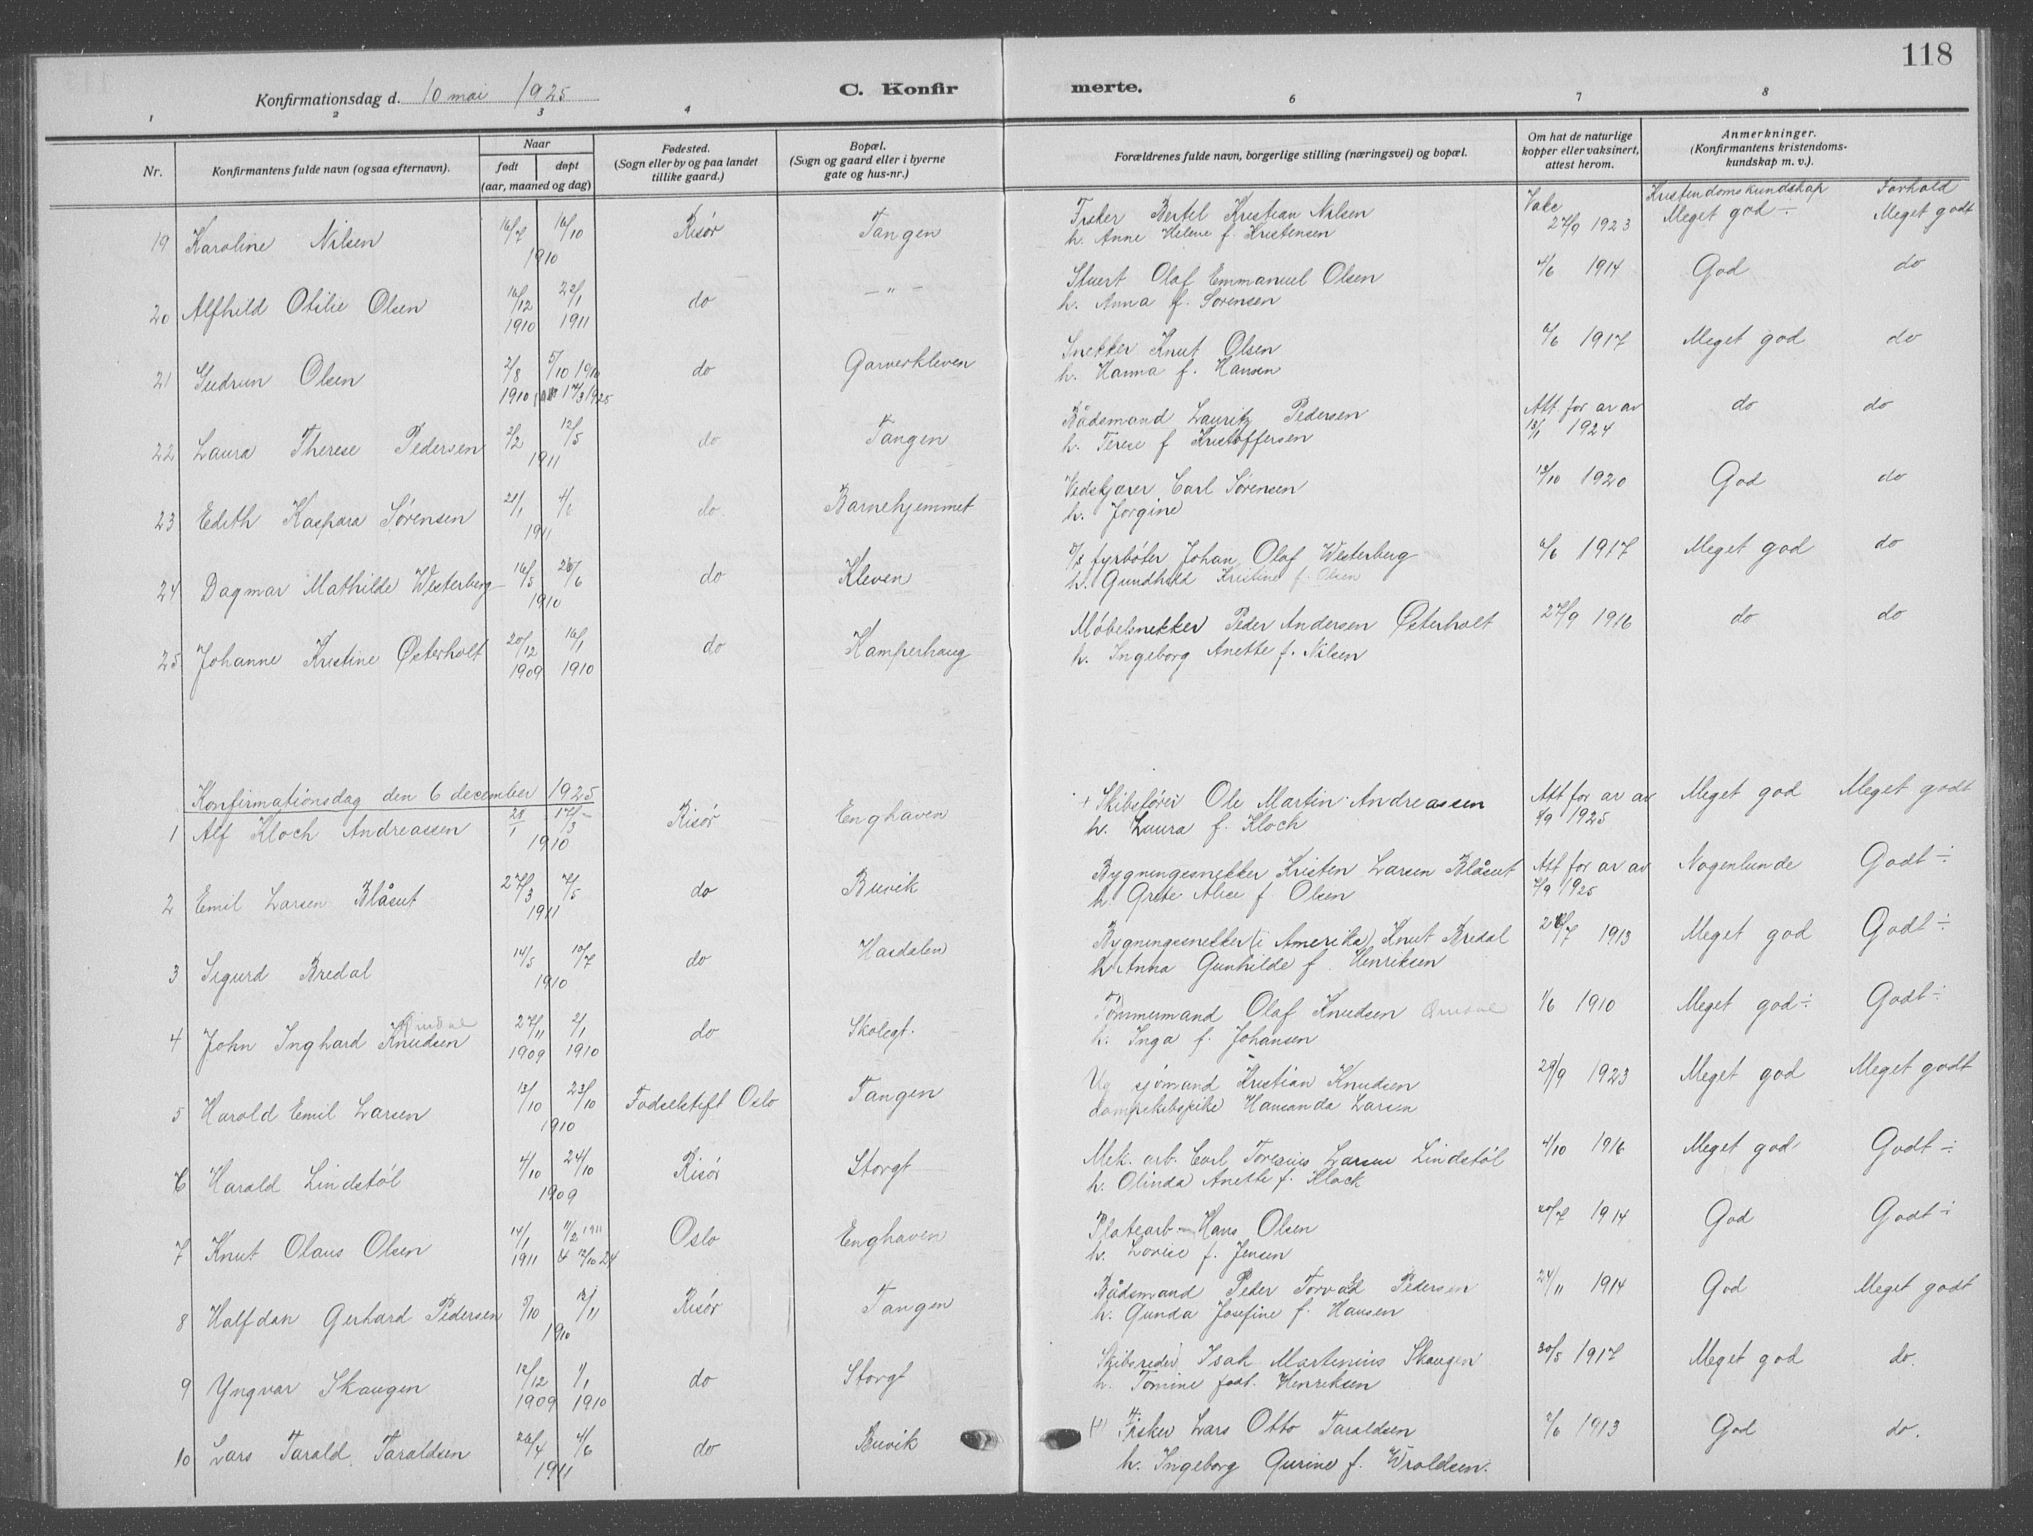 118
Konfirmationsdag d. 10 mai 1925
C. Konfir merte.
1 2 3 4 6 7 8
Nr.
Konfirmantens fulde navn (ogsaa efternavn).
Naar
født døpt
(aar, maaned og dag)
Fødested.
(Sogn eller by og paa landet
tillike gaard.)
Bopæl.
(Sogn og gaard eller i byerne
gate og hus-nr.)
Forældrenes fulde navn, borgerlige stilling (næringsvei) og bopæl.
Om hat de naturlige
kopper eller vaksinert,
attest herom.
Anmerkninger.
(Konfirmantens kristendoms-
kundskap m. v.).
Kristendomskundskap Forhold
19 Karoline Nilsen 16/7 16/10 1910 Risør Tangen Fisker Bertel Kristian Nilsen Vakc 27/9 1923 Meget god ÷ Meget godt
h. Anne Helene f. Kristensen
20 Alfhild Otilie Olsen 16/12 1910 22/1 1911 do — " — Stuert Olaf Emmanuel Olsen 4/6 1914 God do
h. Anna f. Sørensen
21 Gudrun Olsen 2/8 1910 5/10 1910 17/3 1925 do Garverkleven Snekker Knut Olsen 6/6 1917 Meget god do
h. Hanna f. Hansen
22 Laura Therese Pedersen 2/2 12/5 1911 do Tangen Bådsmand Lauritz Pedersen Att for ar av 13/1 1924 do do
h. Terese f Kristoffersen
23 Edith Kaspara Sørensen 21/1 4/6 1911 do Barnehjemmet Vedskjærer Carl Sørensen 13/10 1920 God do
h. Jørgine
24 Dagmar Mathilde Westerberg 16/5 26/6 1910 do Kleven D/s fyrbøter Johan Olaf Westerberg 6/6 1917 Meget god do
h. Gundhild Kristine f. Olsen
25 Johanne Kristine Østerholt 20/12 1909 16/1 1910 do Kamperhaug Møbelsnekker Peder Andersen Østerholt 27/9 1916 do do
h. Ingeborg Anette f. Nilsen
Konfirmationsdag den 6 december 1925
1 Alf Kloch Andreassen 28/1 17/3 1910 Risør Enghaven + Skibsfører Ole Martin Andreassen Att for ar av 8/9 1925 Meget god Meget godt
h. Laura f. Kloch
2 Emil Larsen Blåsut 27/3 7/5 1911 do Buvik Bygningssnekker Kristen Larsen Blåsut Att for ar av 7/9 1925 Nogenlunde Godt ÷
h Grete Alice f Olsen
3 Sigurd Bredal 14/5 10/7 1910 do Hasdalen Bygningssnekker (i Amerika) Knut Bredal 28/7 1913 Meget god Godt ÷
h Anna Gunhilde f. Henriksen
4 John Inghard Knudsen 27/11 1909 2/1 1910 do Skolegt. Tømmermand Olaf Knudsen 1/6 1910 Meget god ÷ Godt ÷
h. Inga f. Johansen
5 Harald Emil Larsen 13/10 23/10 1910 Fødselstift Oslo Tangen Ug sjømand Kristian Knudsen 29/9 1923 Meget god Meget godt
dampskibspike Hansanda Larsen
6 Harald Lindstøl 4/10 24/10 1909 Risør Storgt Mek. arb. Carl Toresius Larsen Lindstøl 4/10 1916 Meget god Godt ÷
h. Olinda Anette f. Klock
7 Knut Olaus Olsen 14/1 1911 11/2 1911 & 12/10 24 Oslo Enghaven Platearb - Hans Olsen 20/7 1914 God Godt ÷
h. Lovise f. Jensen
8 Halfdan Gerhard Pedersen 5/10 13/11 1910 Risør Tangen Bådsmand Peder Torvald Pedersen 24/11 1914 God Meget godt
h. Gunda Josefine f. Hansen
9 Yngvar Skaugen 12/12 1909 1/1 1910 do Storgt Skibsreder Isak Martinius Skaugen 30/5 1917 Meget god do.
h. Tomine født. Henriksen
10 Lars Tarald Taraldsen 26/4 4/6 1911 do Buvik Fisker Lars Otto Taraldsen 2/6 1913 God do.
h. Ingeborg Gurine f. Wroldsen.